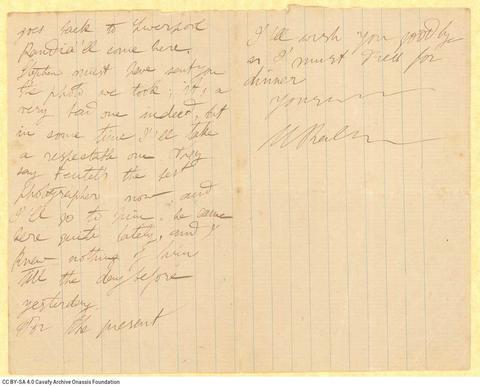 goes back to Liverpool
I'll come here.
Stephen must have sent you
the photo we took; it's a
very bad one indeed, but
in some time I'll take
a respectable one. They
say is the best
photographer now and
I'll go to him; he came
here quite lately, and I
knew nothing of him
till the day before
yesterday
For the present
I'll wish you goodby
as I must dress for
dinner
Yours
CC BY-SA 4.0 Cavafy Archive Onassis Foundation